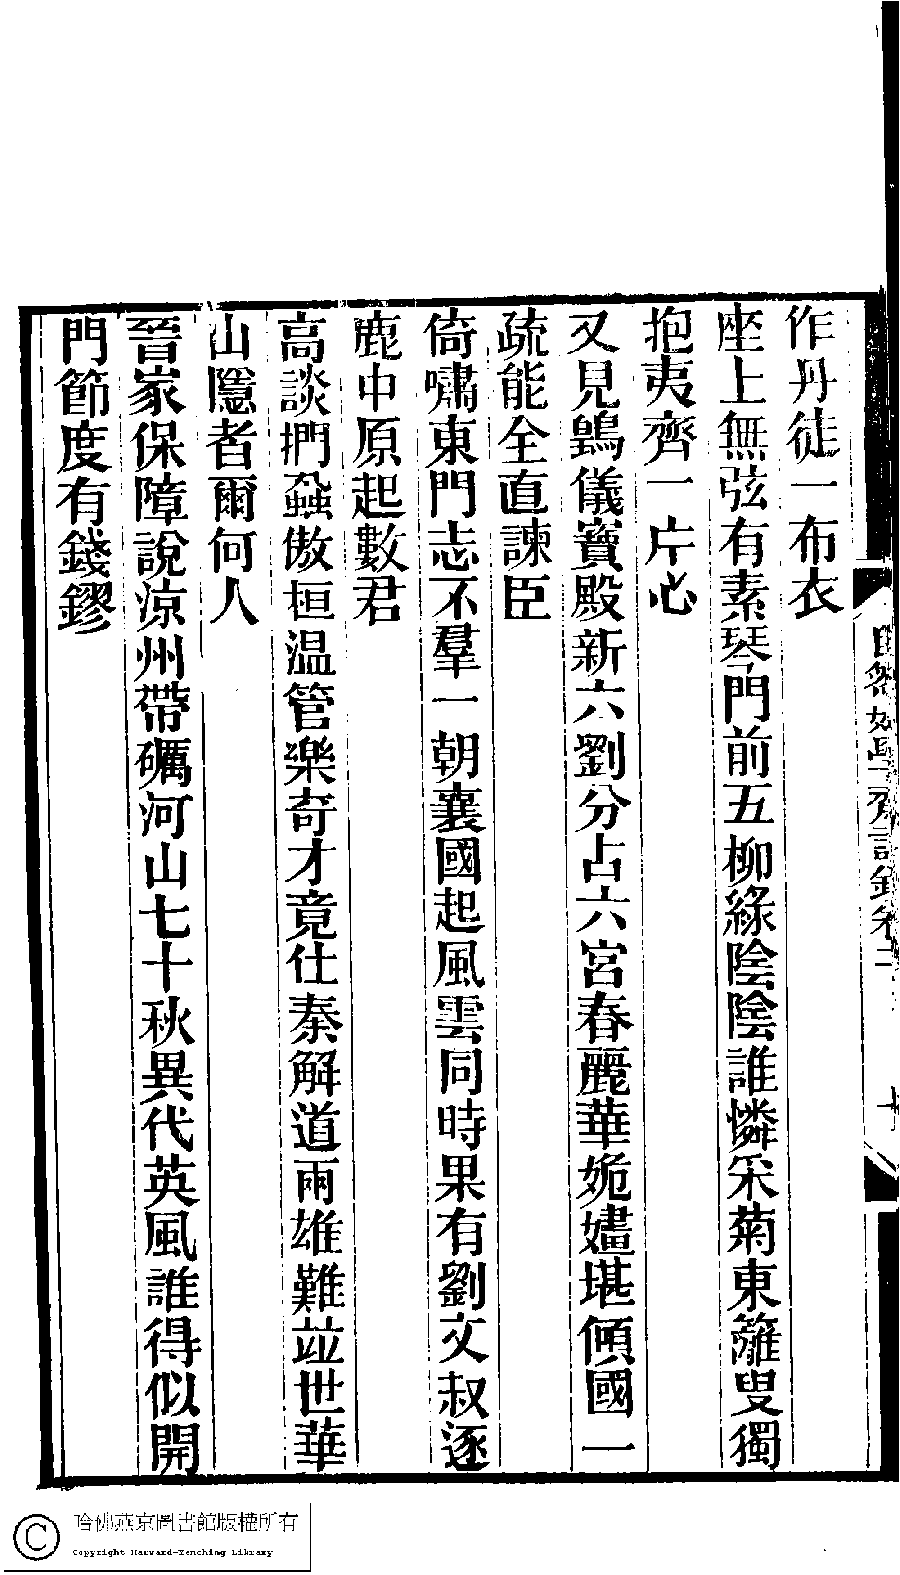 作丹徒一布衣
座上無弦有素琴門前五柳綠陰陰誰憐采菊東籬叟獨
抱夷齊一片心
又見鴞儀寶殿新六劉分占六宮春麗華姽嫿堪傾國一
疏能全直諫臣
倚嘯東門志不羣一朝襄國起風雲同時果有劉文叔逐
鹿中原起數君
高談捫蝨傲桓温管樂奇才竟仕秦解道兩雄難竝世華
山隱者爾何人
晉家保障說涼州帶礪河山七十秋異代英風誰得似開
門節度有錢鏐
哈佛燕京圖書館版權所有
Copyright Harvard-Yenching Library